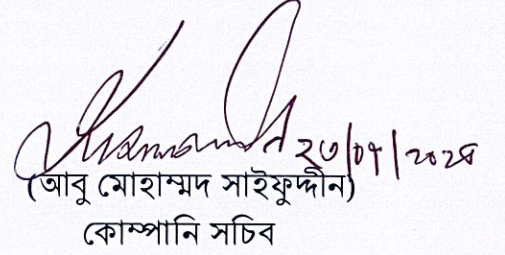 ২৩/০৭/২০২৪
(আবু মোহাম্মদ সাইফুদ্দীন)
কোম্পানি সচিব